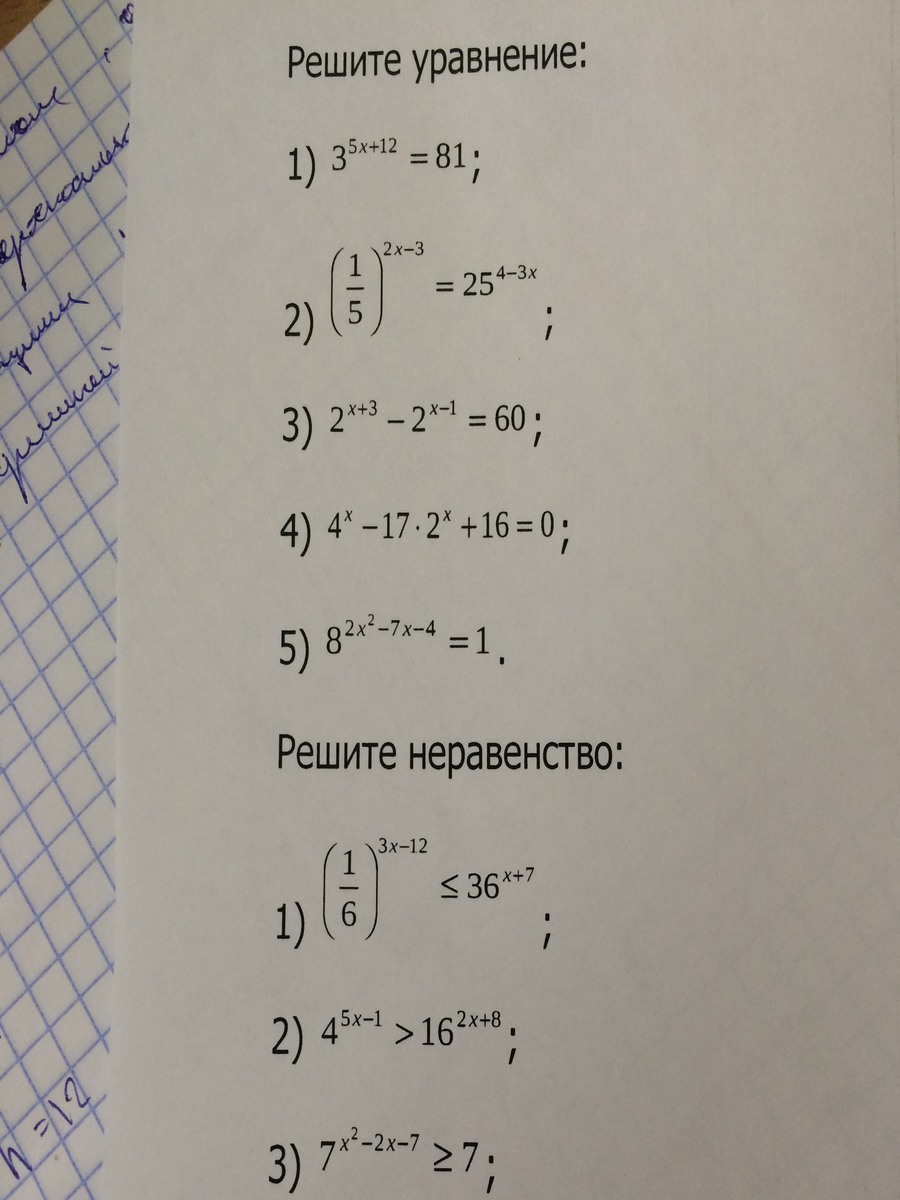 Решите уравнение:
1) 3^{5x+12} = 81;
2) (1/5)^{2x−3} = 25^{4−3x};
3) 2^{x+3} − 2^{x−1} = 60;
4) 4^x − 17 · 2^x + 16 = 0;
5) 8^{2x²−7x−4} = 1.
Решите неравенство:
1) (1/6)^{3x−12} ≤ 36^{x+7};
2) 4^{5x−1} > 16^{2x+8};
3) 7^{x²−2x−7} ≥ 7;
n = 12